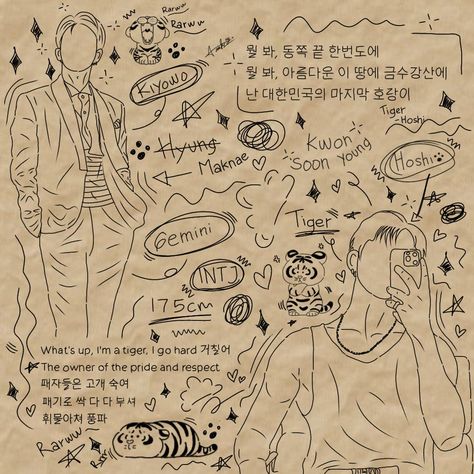 Rarww
Rarww
KIYOWO
뭘 봐, 동쪽 끝 한번도에
뭘 봐, 아름다운 이 땅에 금수강산에
난 대한민국의 마지막 호랑이
Tiger
-Hoshi
Hyung
Maknae
Kwon
Soon Young
Hoshi
Gemini
INTJ
175cm
Tiger
What's up, I'm a tiger, I go hard 거칠어
The owner of the pride and respect
패자들은 고개 숙여
패기로 싹 다 다 부셔
휘몰아쳐 풍파
Rarww
Rarww